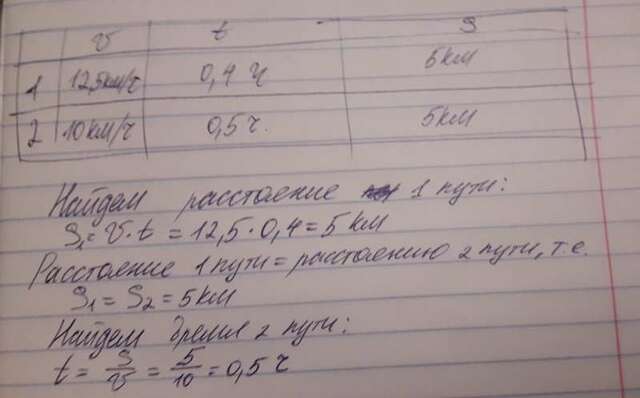 v t S
1 12,5км/ч 0,4 ч 5км
2 10км/ч 0,5ч. 5км
Найдем расстоение 1 пути:
S₁ = v · t = 12,5 · 0,4 = 5 км
Расстоение 1 пути = расстоению 2 пути, т.е.
S₁ = S₂ = 5км
Найдем время 2 пути:
t = S/v = 5/10 = 0,5 ч